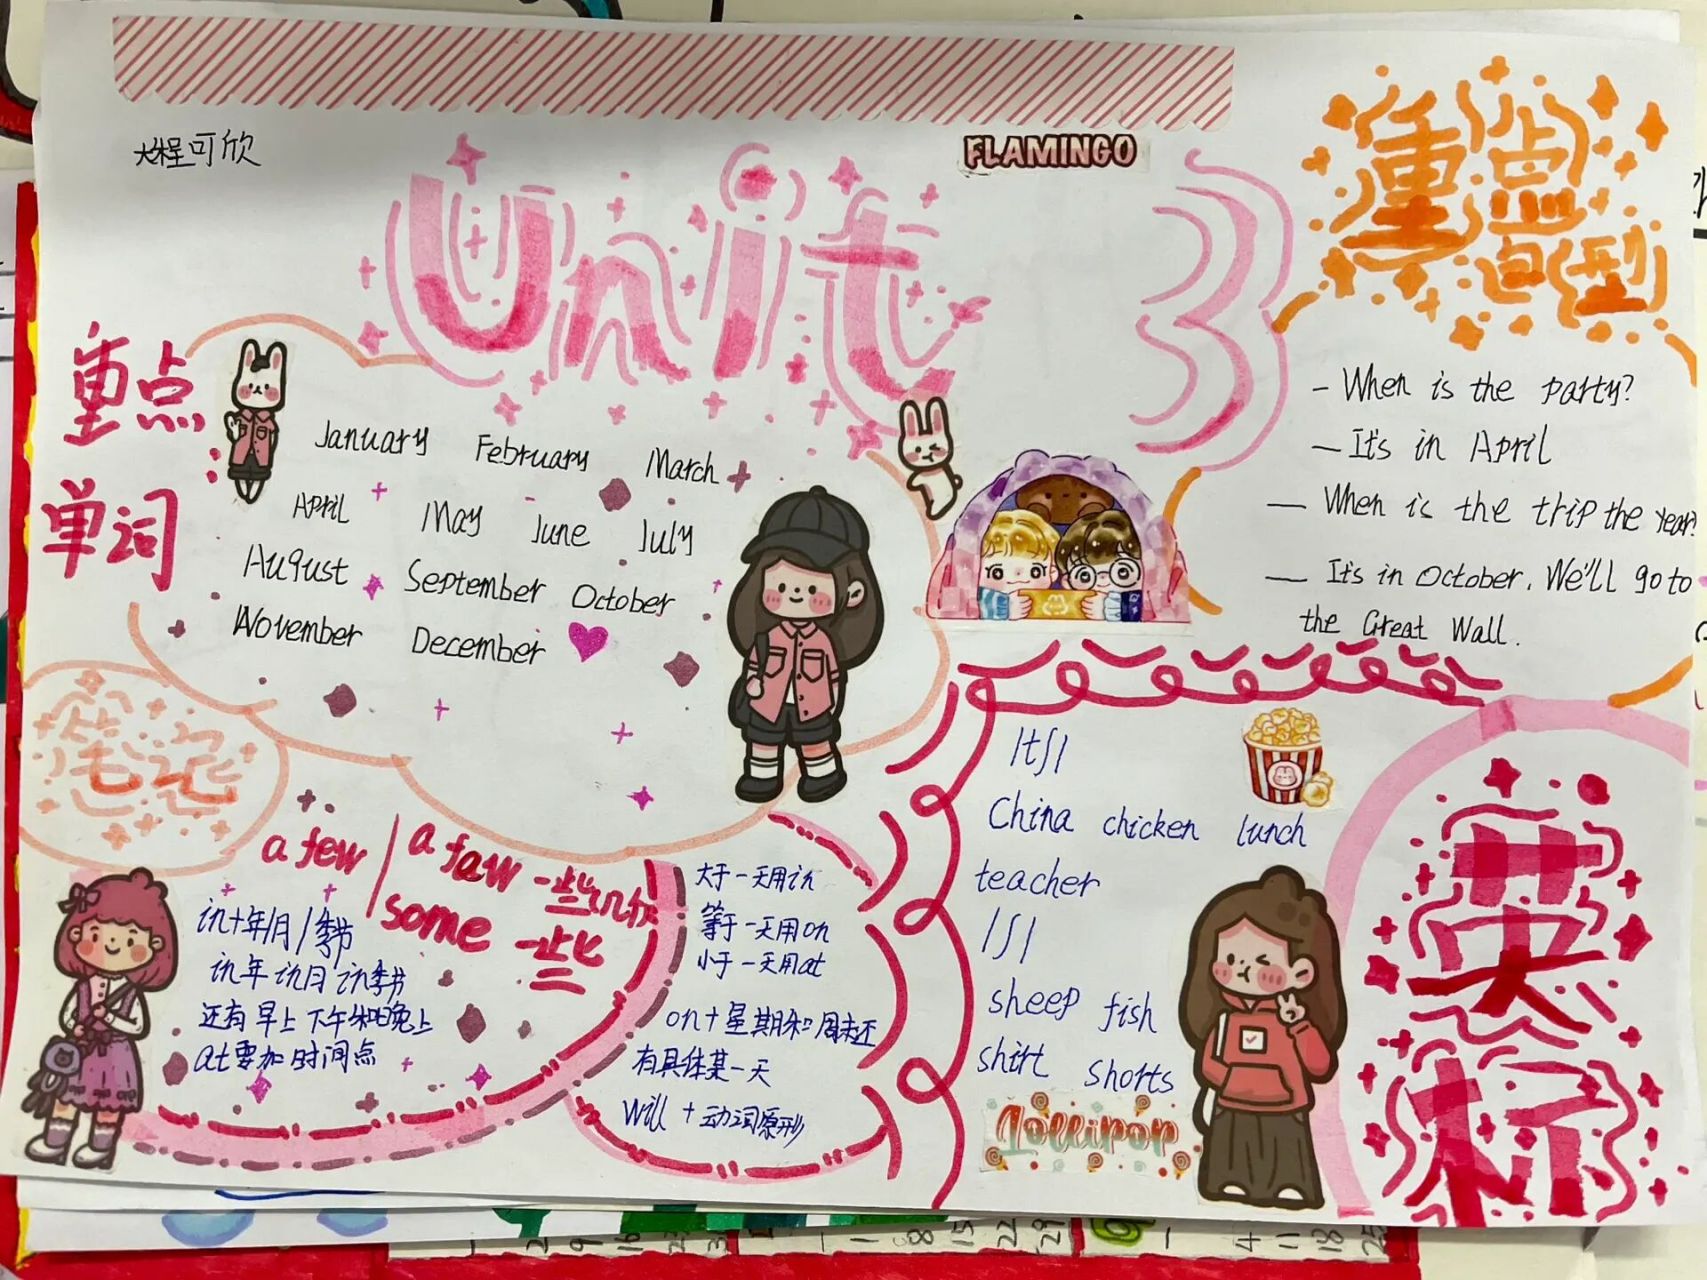 程可欣
FLAMINGO
Unit 3
重点
句型
- When is the party?
- It's in April
- When is the trip the year?
- It's in October. We'll go to
the Great Wall.
重点
单词
January February March
April May June July
August September October
November December
笔记
a few / a faw 一些几分
some 一些
in+年/月/季节
in年 in月 in季节
还有早上下午和晚上
at要加时间点
大于一天用in
等于一天用on
小于一天用at
on+星期和周末还
有具体某一天
Will + 动词原形
/tʃ/
China chicken lunch
teacher
/ʃ/
sheep fish
shirt shorts
Lollipop
英
标
2 9 16 23
1 8 15 22 29
4 11 18 25